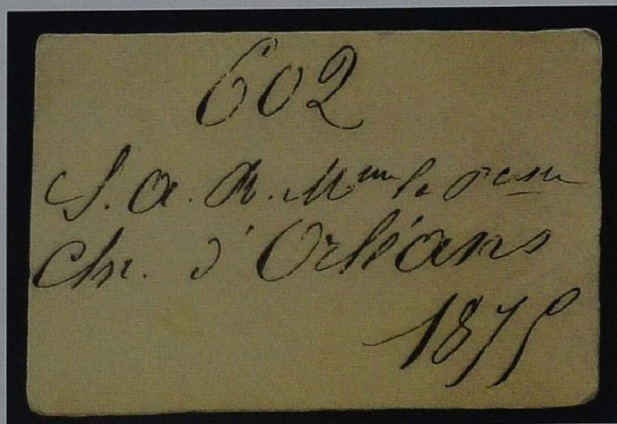 602
S. A. R. Mme la Pcesse
Chr. d'Orléans
1875